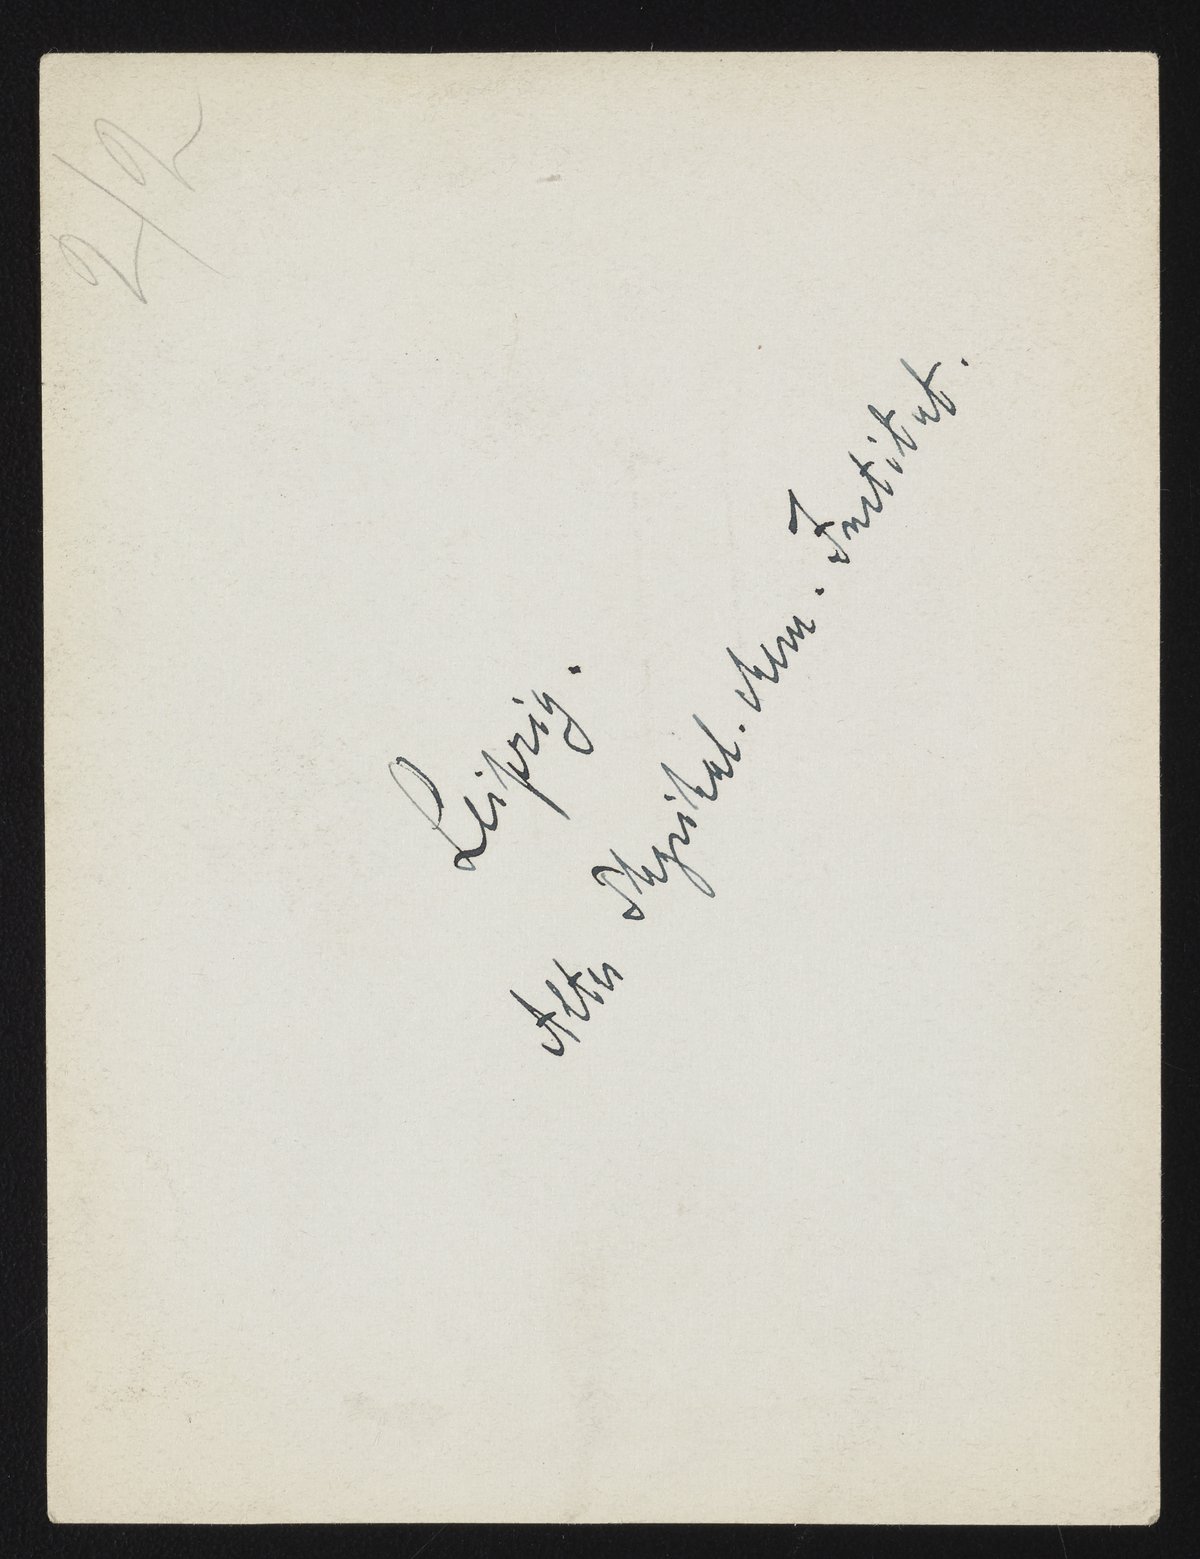 2/2
Leipzig.
Altes Physikal. chem. Institut.